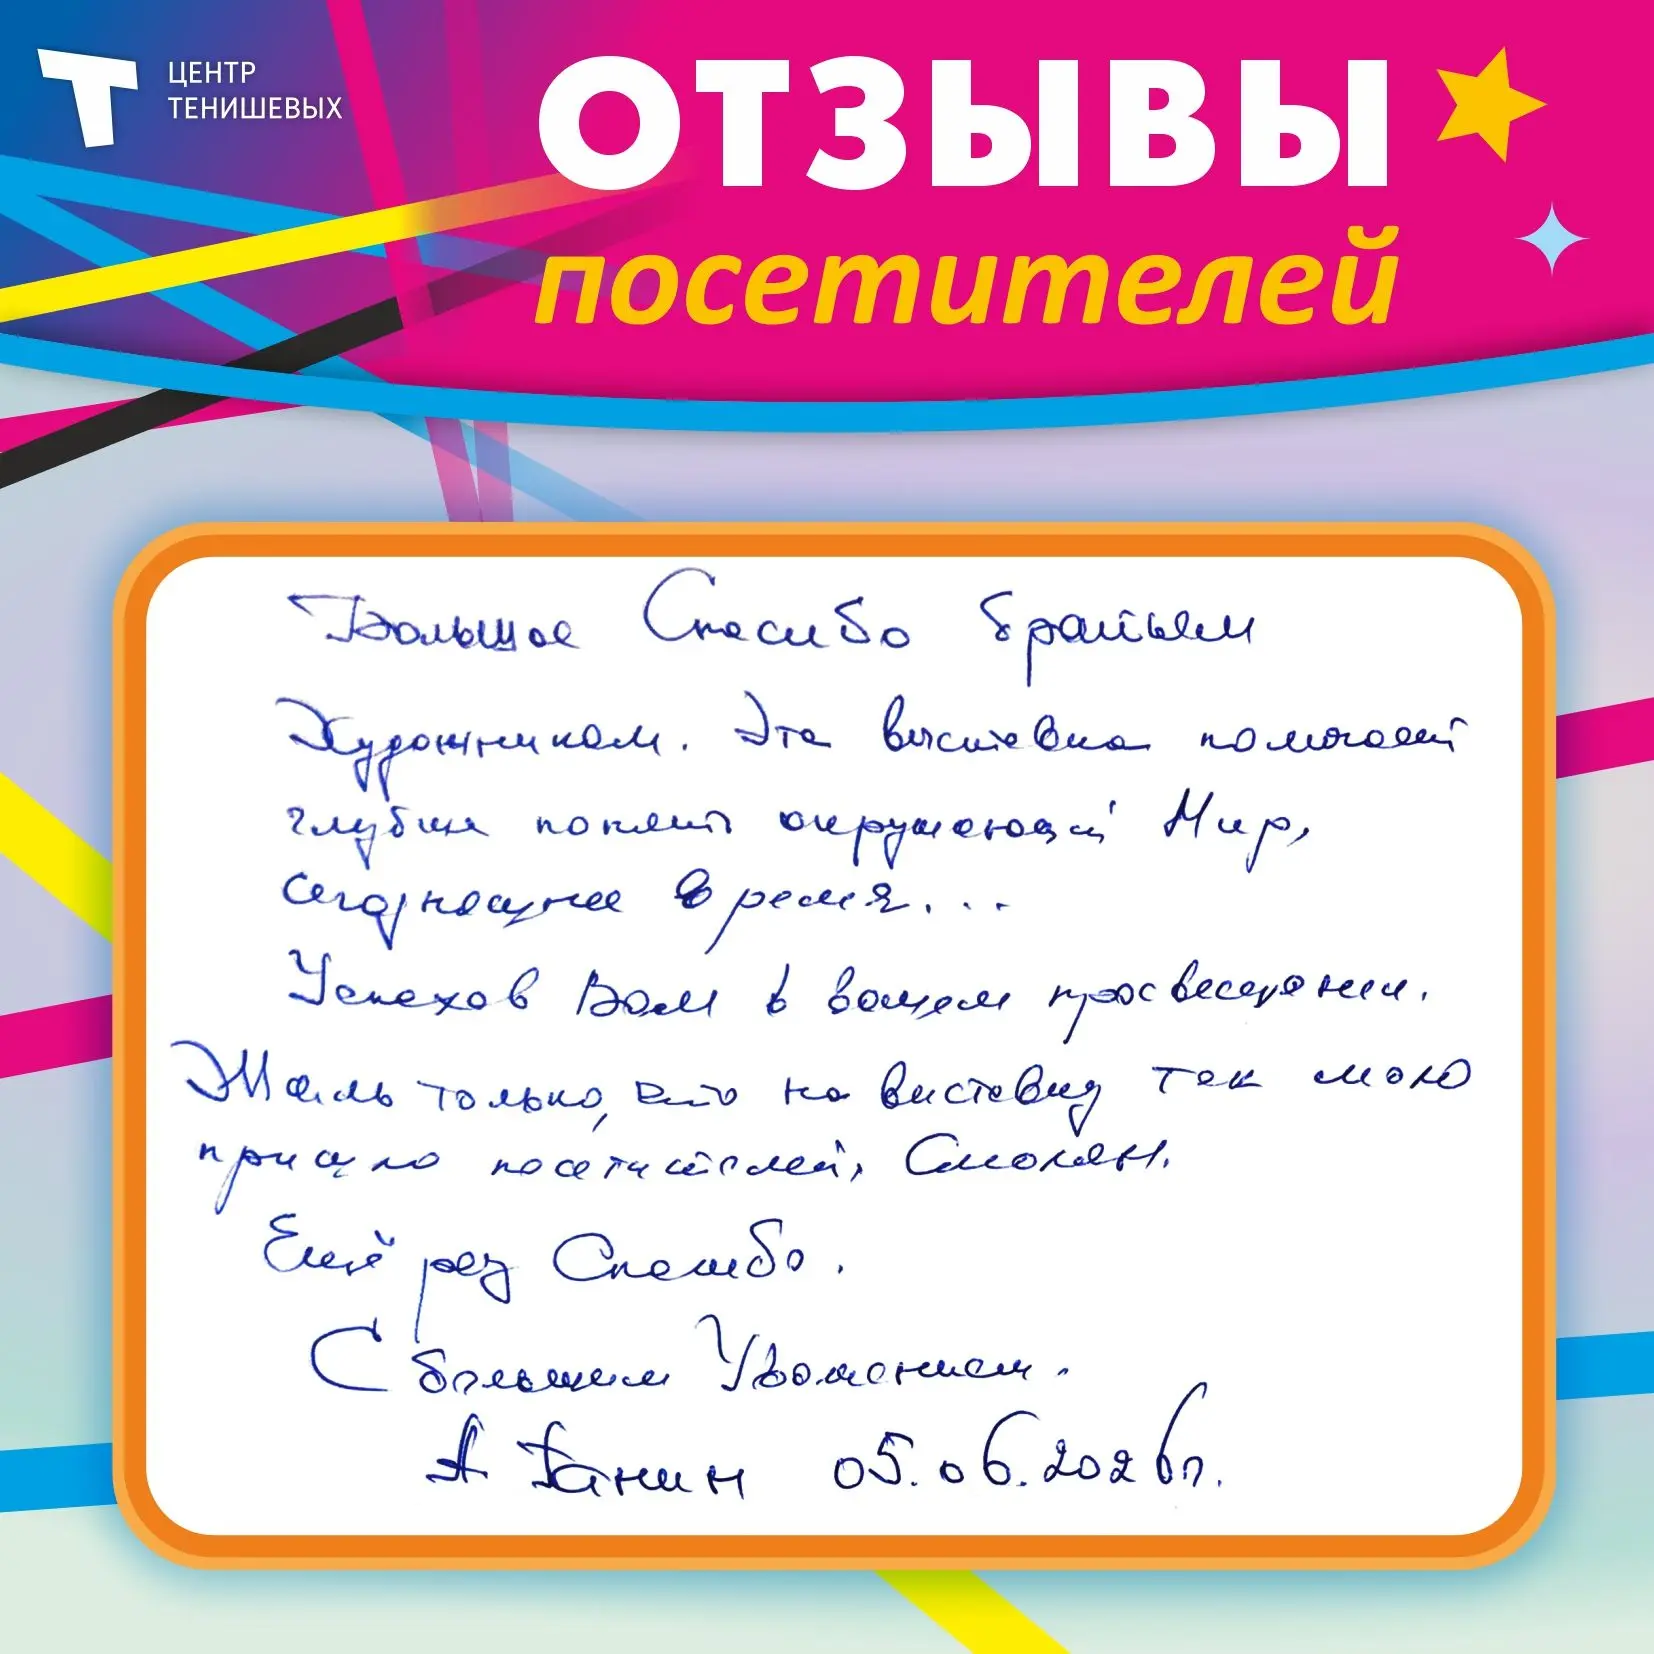 ЦЕНТР
ТЕНИШЕВЫХ
ОТЗЫВЫ
посетителей
Большое Спасибо братьям
Художникам. Эта выставка помогает
глубже понять окружающий Мир,
сегодняшнее время...
Успехов Вам в вашем просвещении.
Жаль только, что на виставку так мало
пришло посетителей, Смолян.
Ещё раз Спасибо.
С большим Уважением.
А 05.06.2026г.